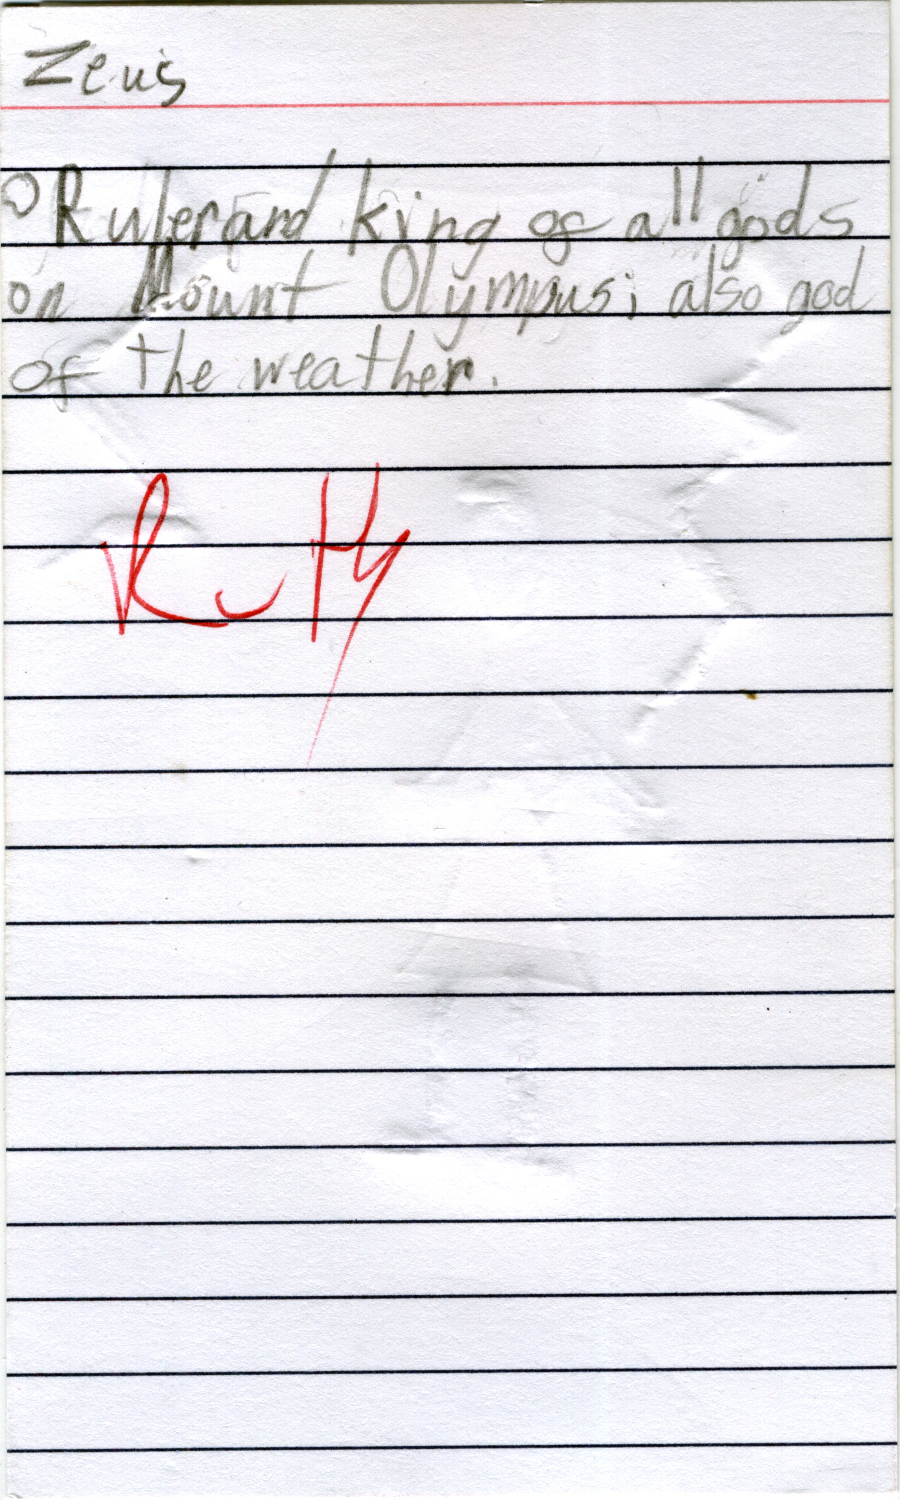 Zeus
Ruler and king of all gods
on Mount Olympus; also god
of the weather.